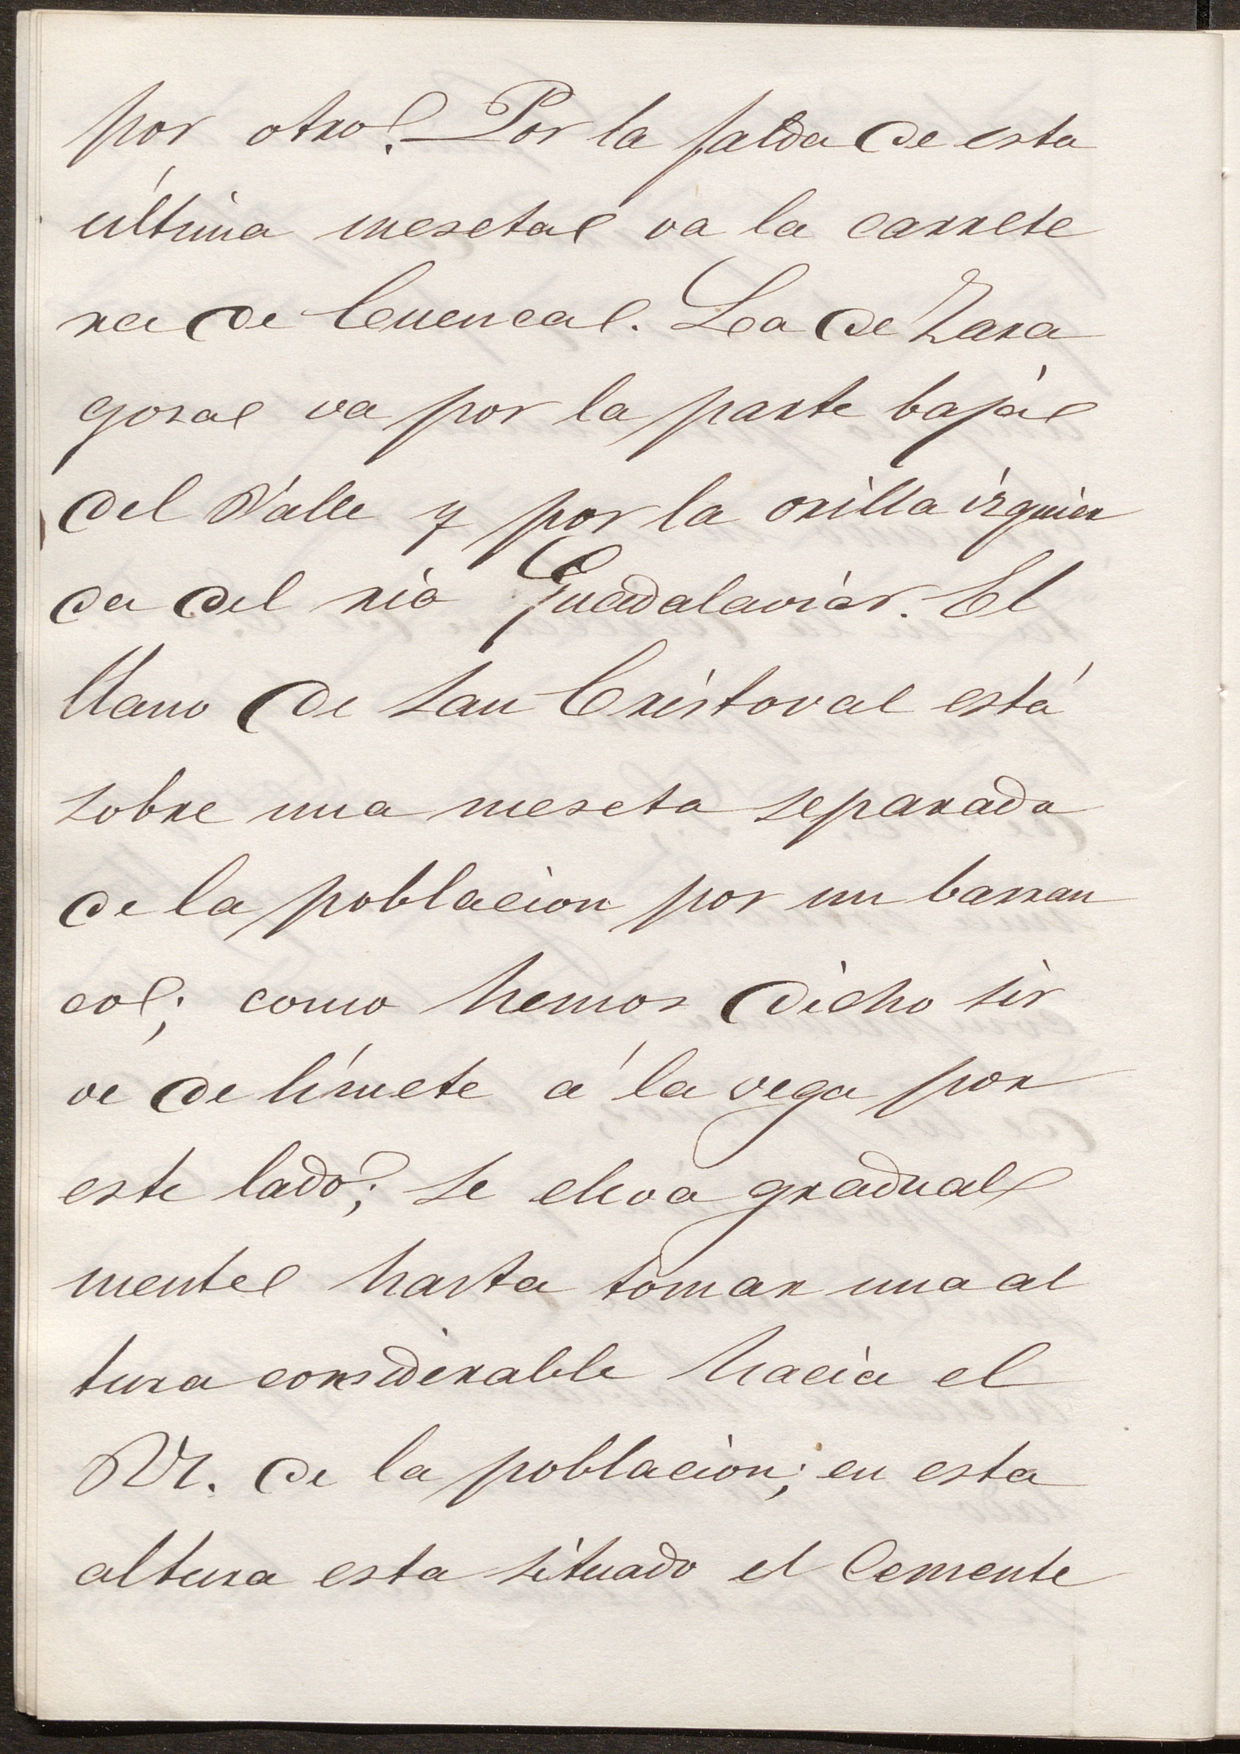 por otro. Por la falda de esta
última meseta va la carrete
ra de Cuenca. La de Zara
goza va por la parte baja
del Valle y por la orilla izquier
da del rio Guadalaviar. El
llano de San Cristoval está
sobre una meseta separada
de la poblacion por un barran
co; como hemos dicho sir
ve de límete á la vega por
este lado; se eleva gradual
mente hasta tomar una al
tura considerable hacia el
N. de la poblacion; en esta
altura esta situado el Cemente